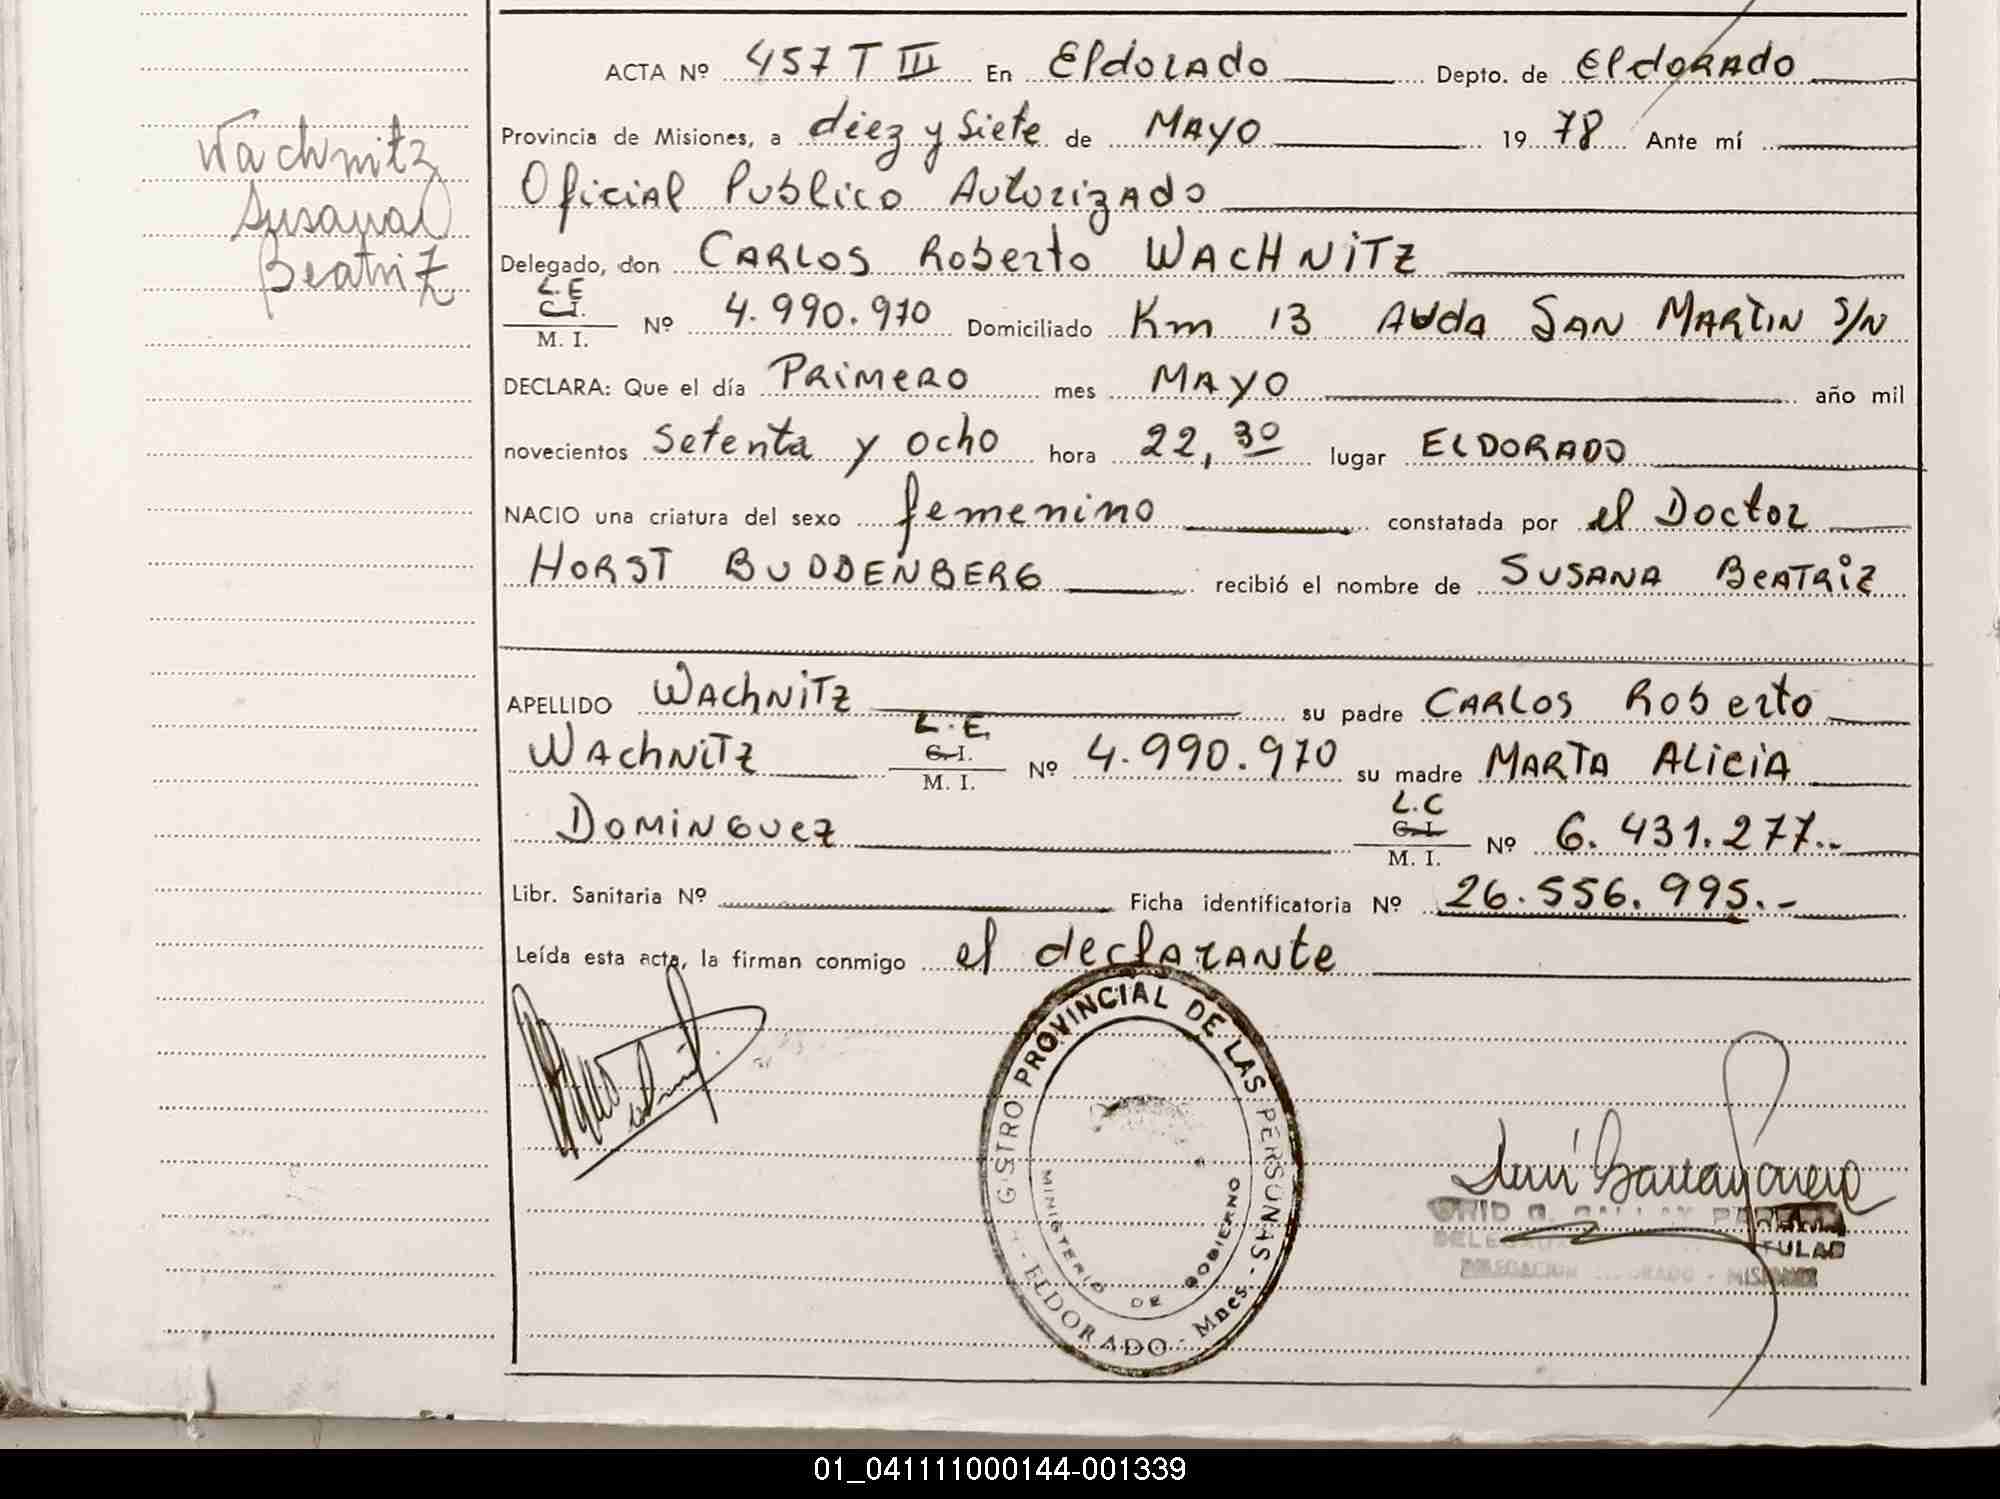 Wachnitz
Susana
Beatriz
ACTA Nº 457 T III En Eldorado Depto. de Eldorado
Provincia de Misiones, a diez y Siete de Mayo 19 78 Ante mí
Oficial Publico Autorizado
Delegado, don Carlos Roberto WACHNITZ
L.E
C.I.
M. I. Nº 4.990.970 Domiciliado Km 13 Avda San Martin S/N
DECLARA: Que el día Primero mes Mayo año mil
novecientos setenta y ocho hora 22,30 lugar ELDORADO
NACIO una criatura del sexo femenino constatada por el Doctor
HORST BUDDENBERG recibió el nombre de SUSANA BEATRIZ
APELLIDO WachNiTz su padre CARLOS Roberto
WachNiTz L.E. C.I. M. I. Nº 4.990.970 su madre MARTA ALICIA
DOMINGUEZ L.C C.I. M. I. Nº 6.431.277.-
Libr. Sanitaria Nº Ficha identificatoria Nº 26.556.995.-
Leída esta acta, la firman conmigo el declarante
GISTRO PROVINCIAL DE LAS PERSONAS - ELDORADO - Mnes.
MINISTERIO DE GOBIERNO
TULAR
01_041111000144-001339